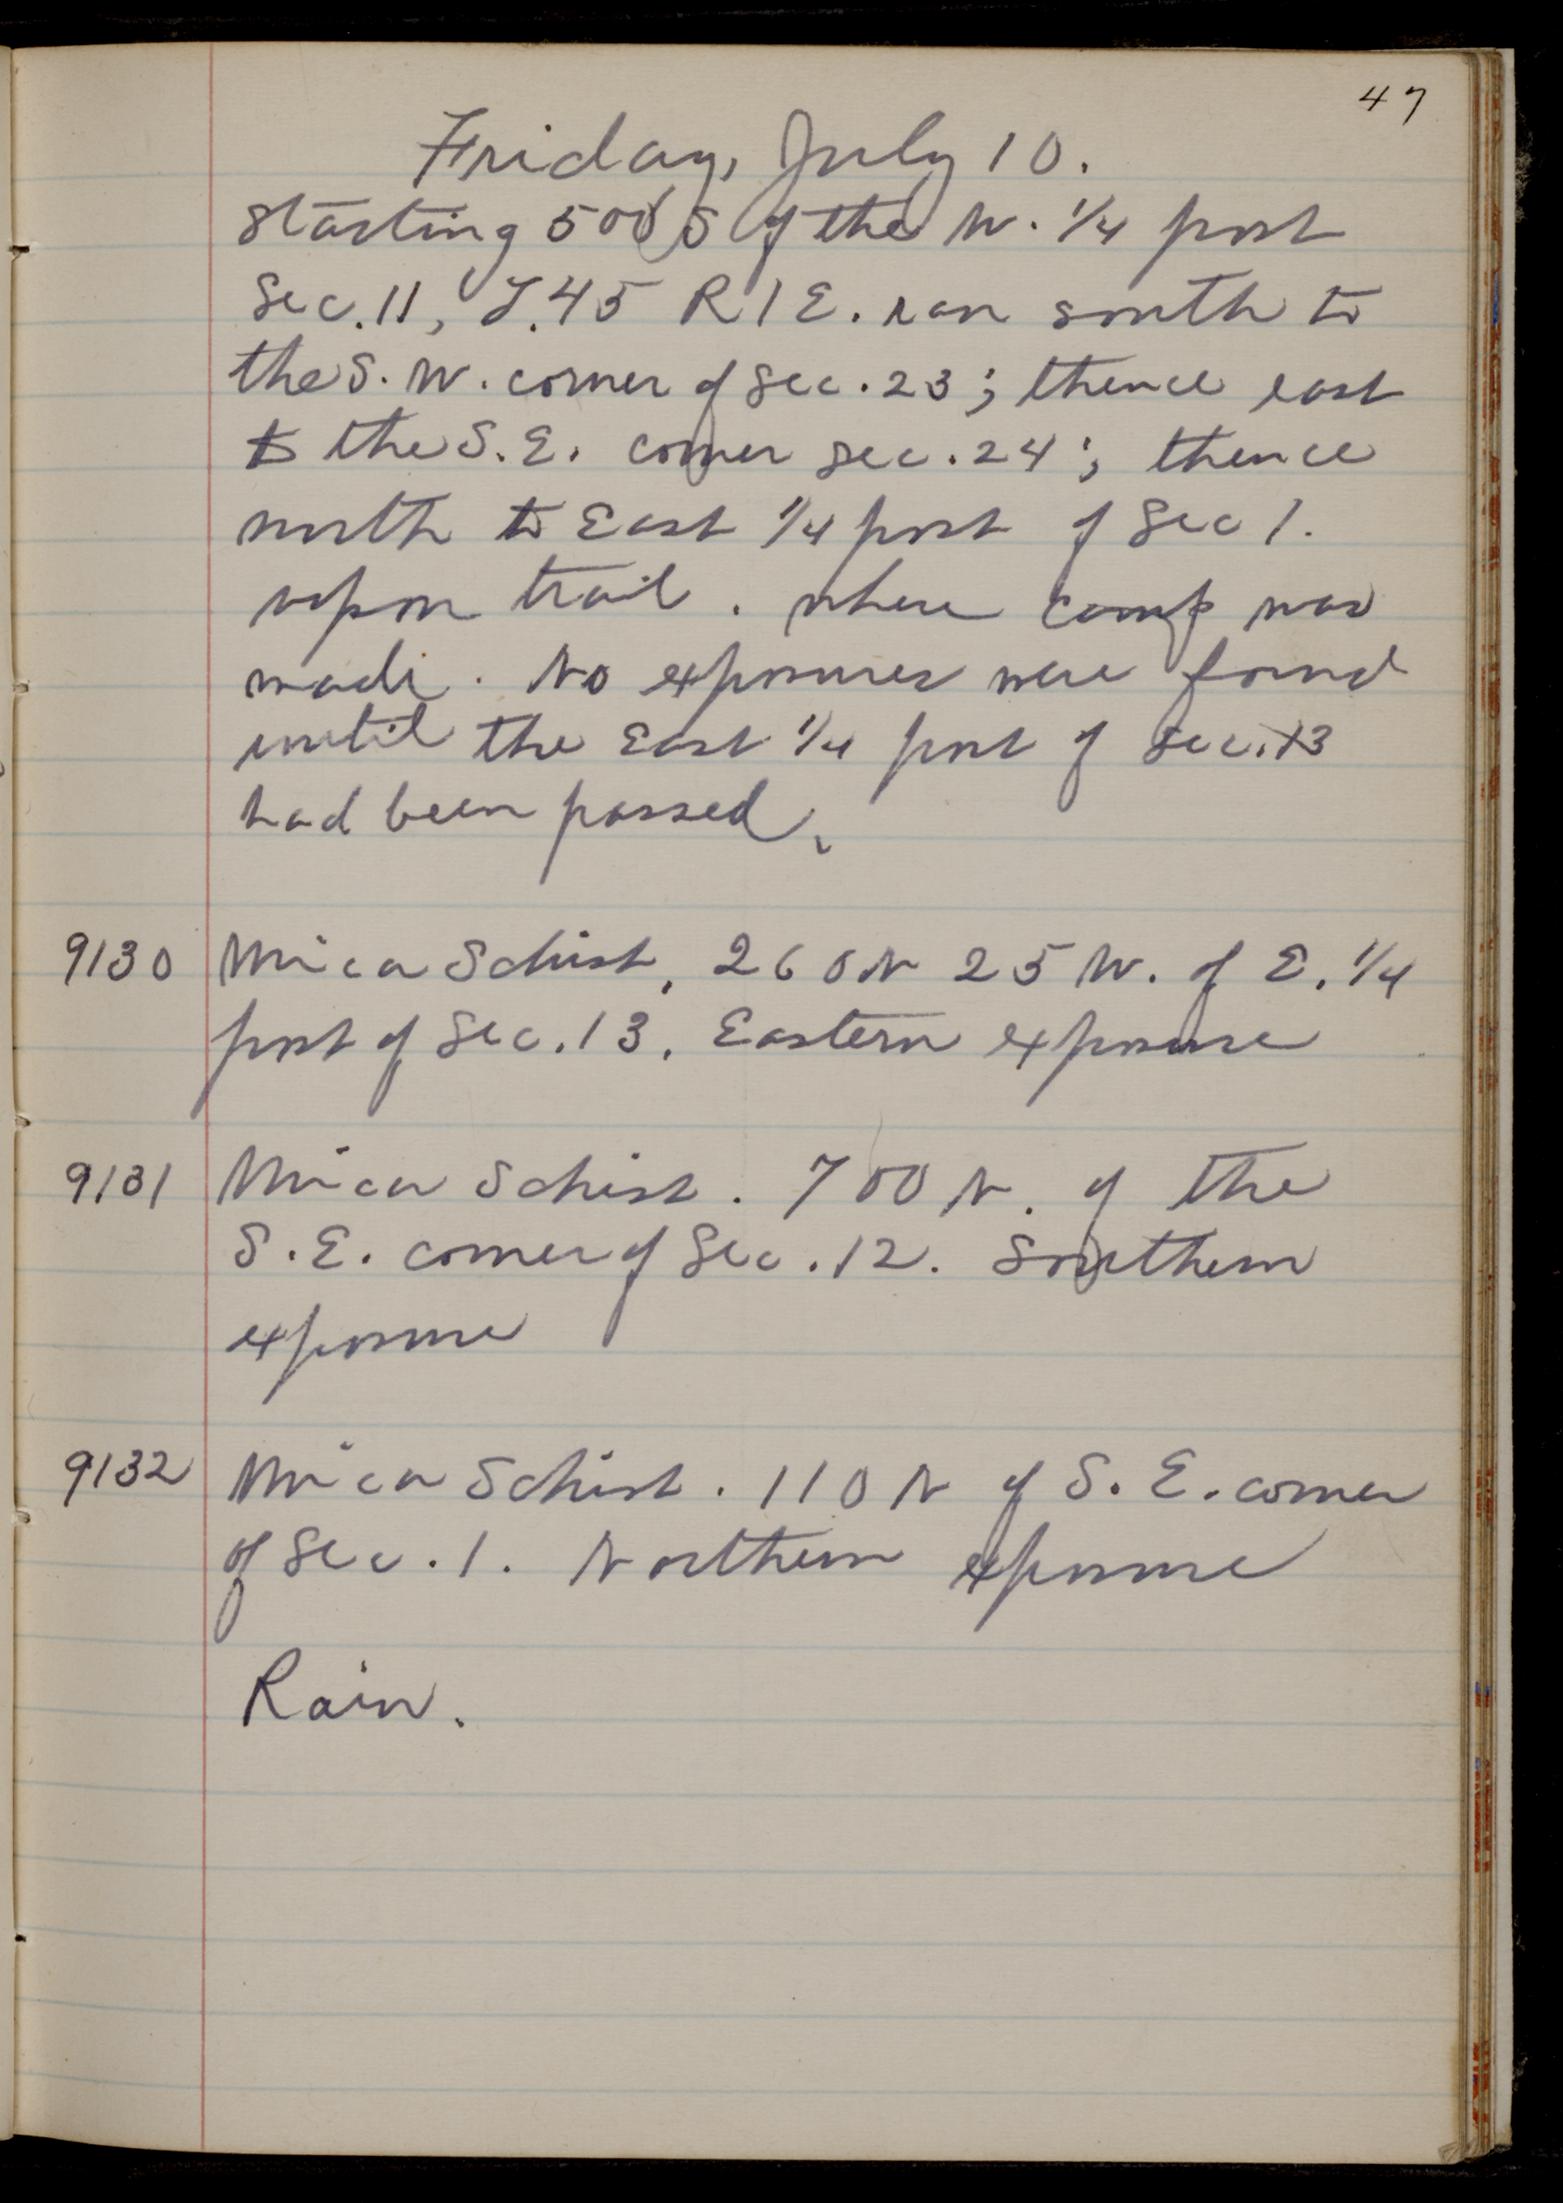 47
Friday, July 10.
Starting 500 S of the W. 1/4 post
Sec. 11, T.45 R 1 E. ran south to
the S. W. corner of Sec. 23; thence east
to the S. E. corner Sec. 24; thence
north to East 1/4 post of Sec 1.
upon trail. where camp was
made. No exposures were found
until the East 1/4 post of Sec. 13
had been passed.
9130 Mica Schist, 260 N 25 W. of E. 1/4
post of Sec. 13. Eastern exposure
9131 Mica Schist. 700 N. of the
S. E. corner of Sec. 12. Southern
exposure
9132 Mica Schist. 110 N of S. E. corner
of Sec. 1. Northern exposure
Rain.